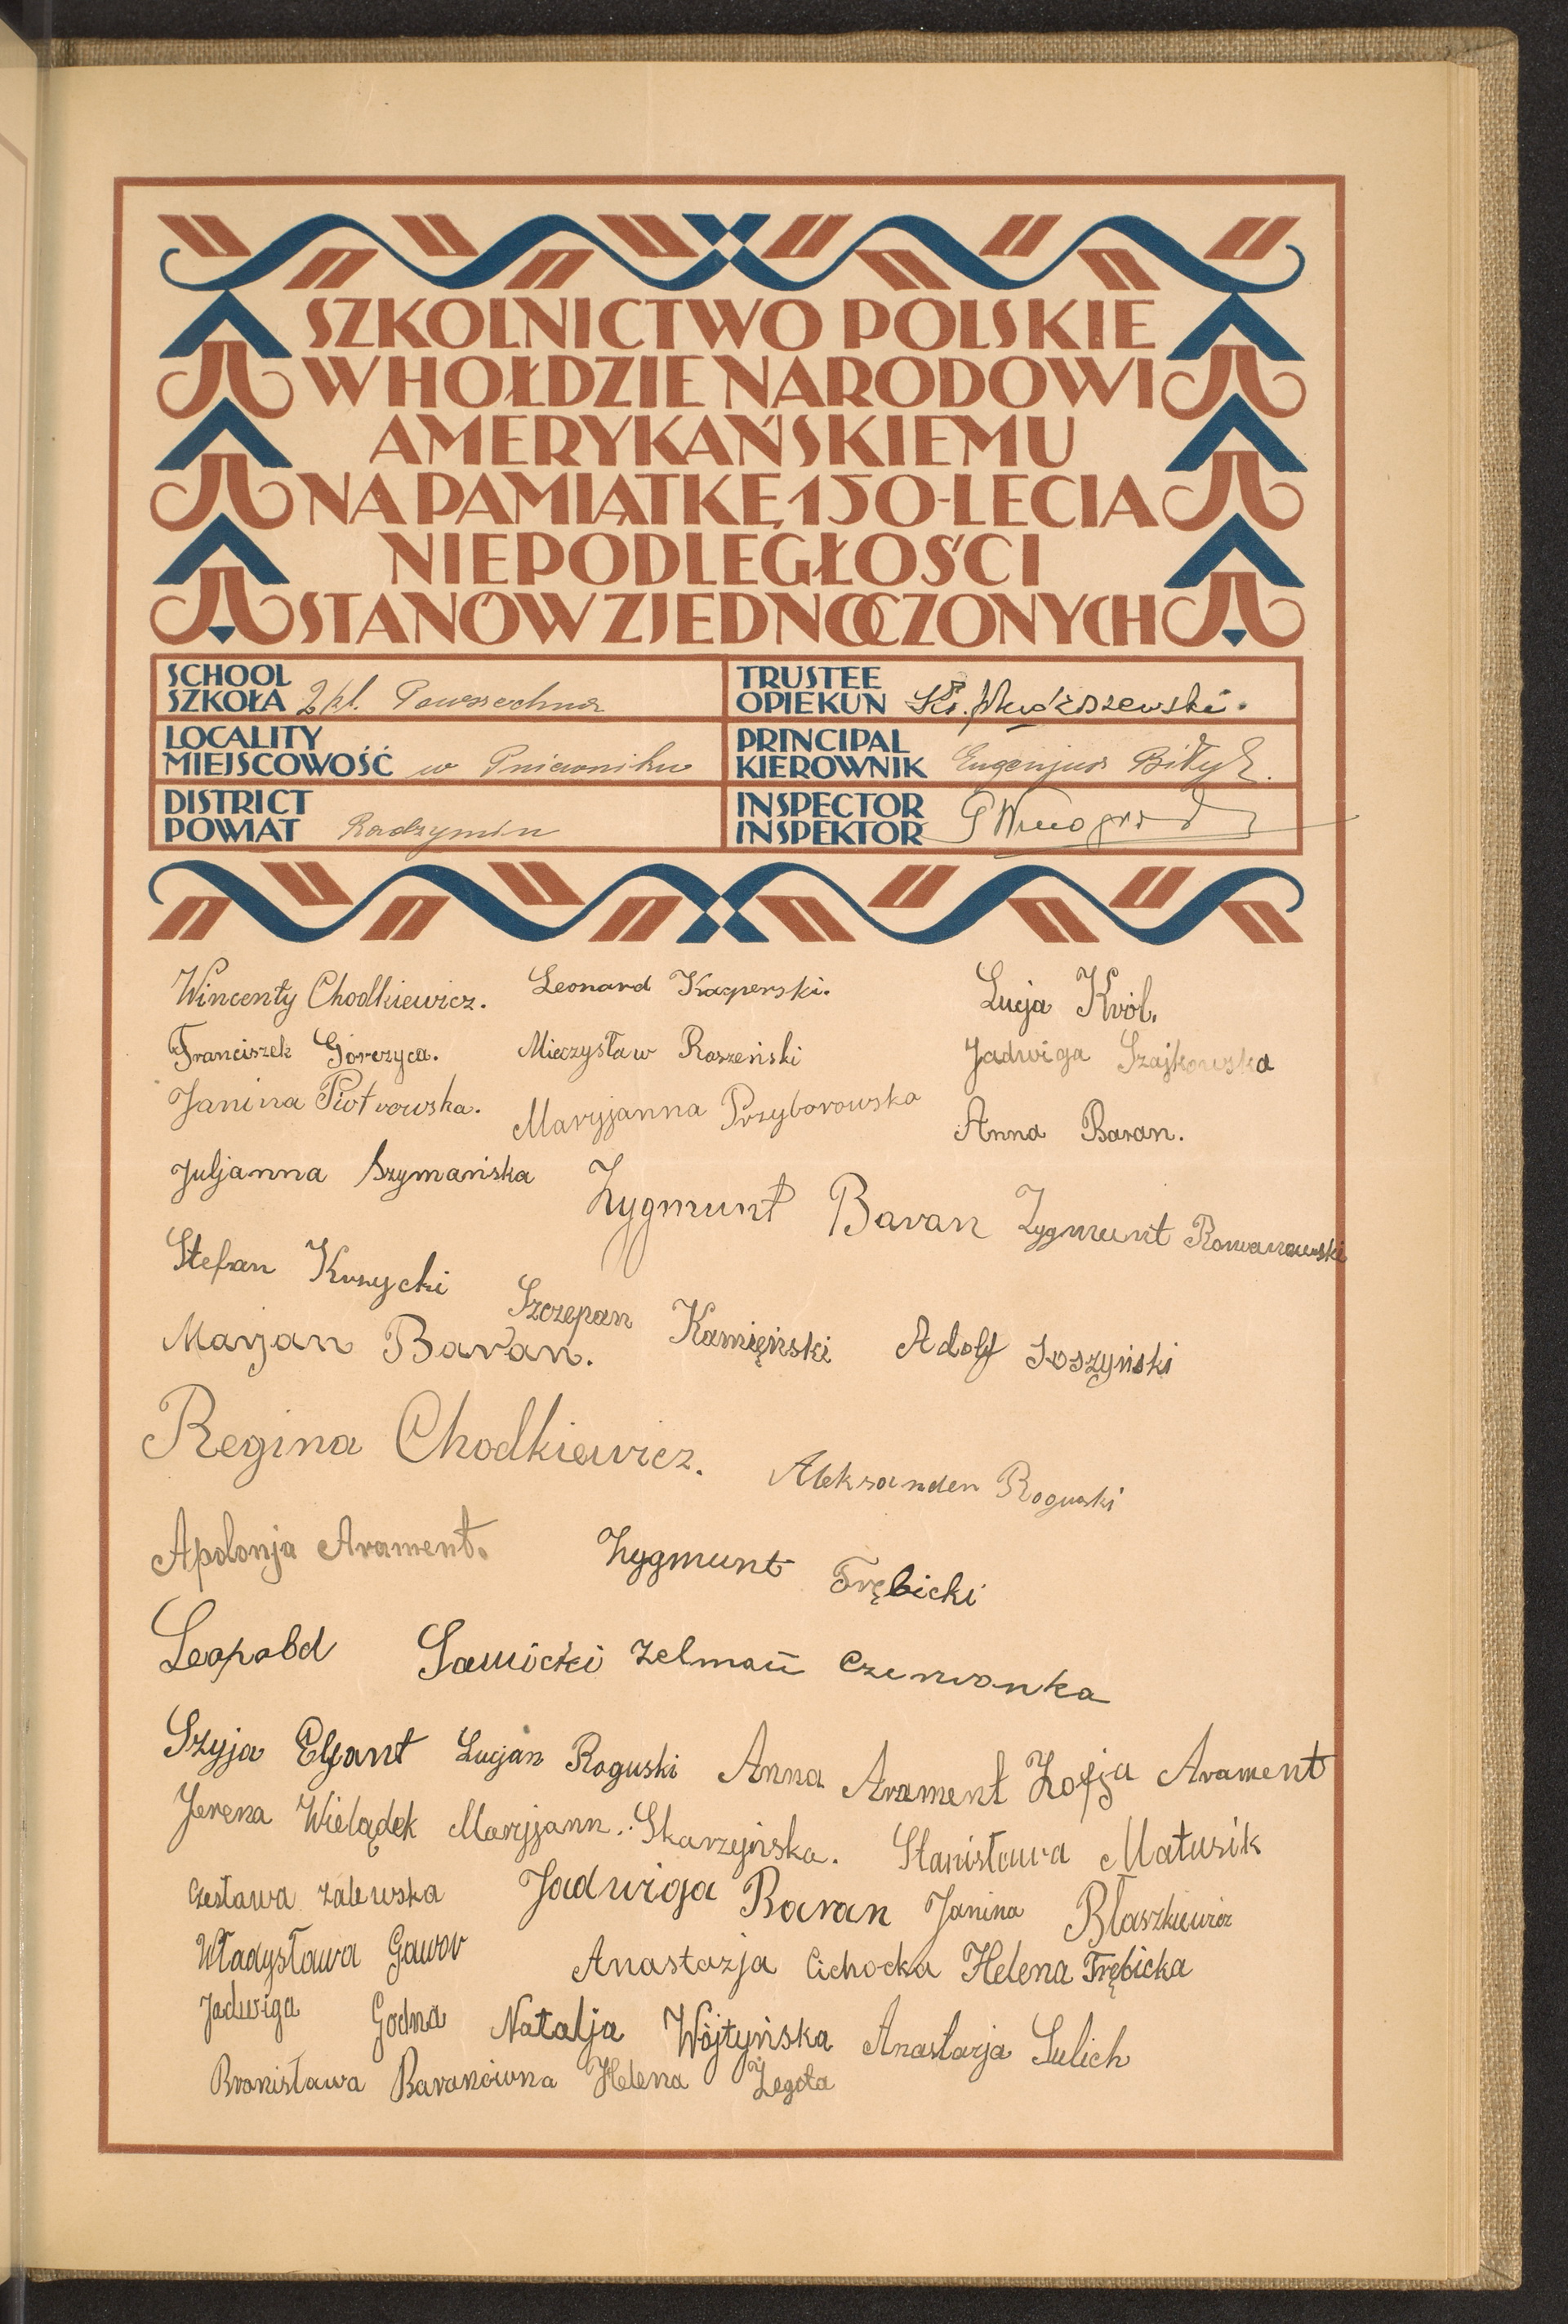 SZKOLNICTWO POLSKIE
W HOŁDZIE NARODOWI
AMERYKAŃSKIEMU
NA PAMIĄTKĘ 150-LECIA
NIEPODLEGŁOŚCI
STANÓW ZJEDNOCZONYCH
SCHOOL
SZKOŁA 2 kl. Powszechna
TRUSTEE
OPIEKUN Ks.
LOCALITY
MIEJSCOWOŚĆ w Pniewniku
PRINCIPAL
KIEROWNIK Eugenjusz Biłyk.
DISTRICT
POWIAT Radzymin
INSPECTOR
INSPEKTOR
Wincenty Chodkiewicz. Leonard Kacperski. Lucja Król.
Franciszek Gorczyca. Mieczysław Roszeński Jadwiga Szajkowska
Janina Piotrowska. Maryjanna Przyborowska Anna Baran.
Juljanna Szymańska Zygmunt Baran Zygmunt Romanowski
Stefan Kuzycki Szczepan Kamięński Adolf Soszyński
Marjan Baran.
Regina Chodkiewicz. Aleksander Roguski
Apolonja Arament. Zygmunt Trębicki
Leopold Sawicki Zelman Czerwonka
Szyja Elgant Lucjan Roguski Anna Arament Zofja Arament
Jerena Wielądek Maryjann. Skarzyńska. Stanisława Matusik
Czesława Zalewska Jadwiga Baran Janina Błaszkiewicz
Władysława Gawor Anastazja Cichocka Helena Trębicka
Jadwiga Godna Natalja Wójtyńska Anastazja Sulich
Bronisława Baranówna Helena Żegota